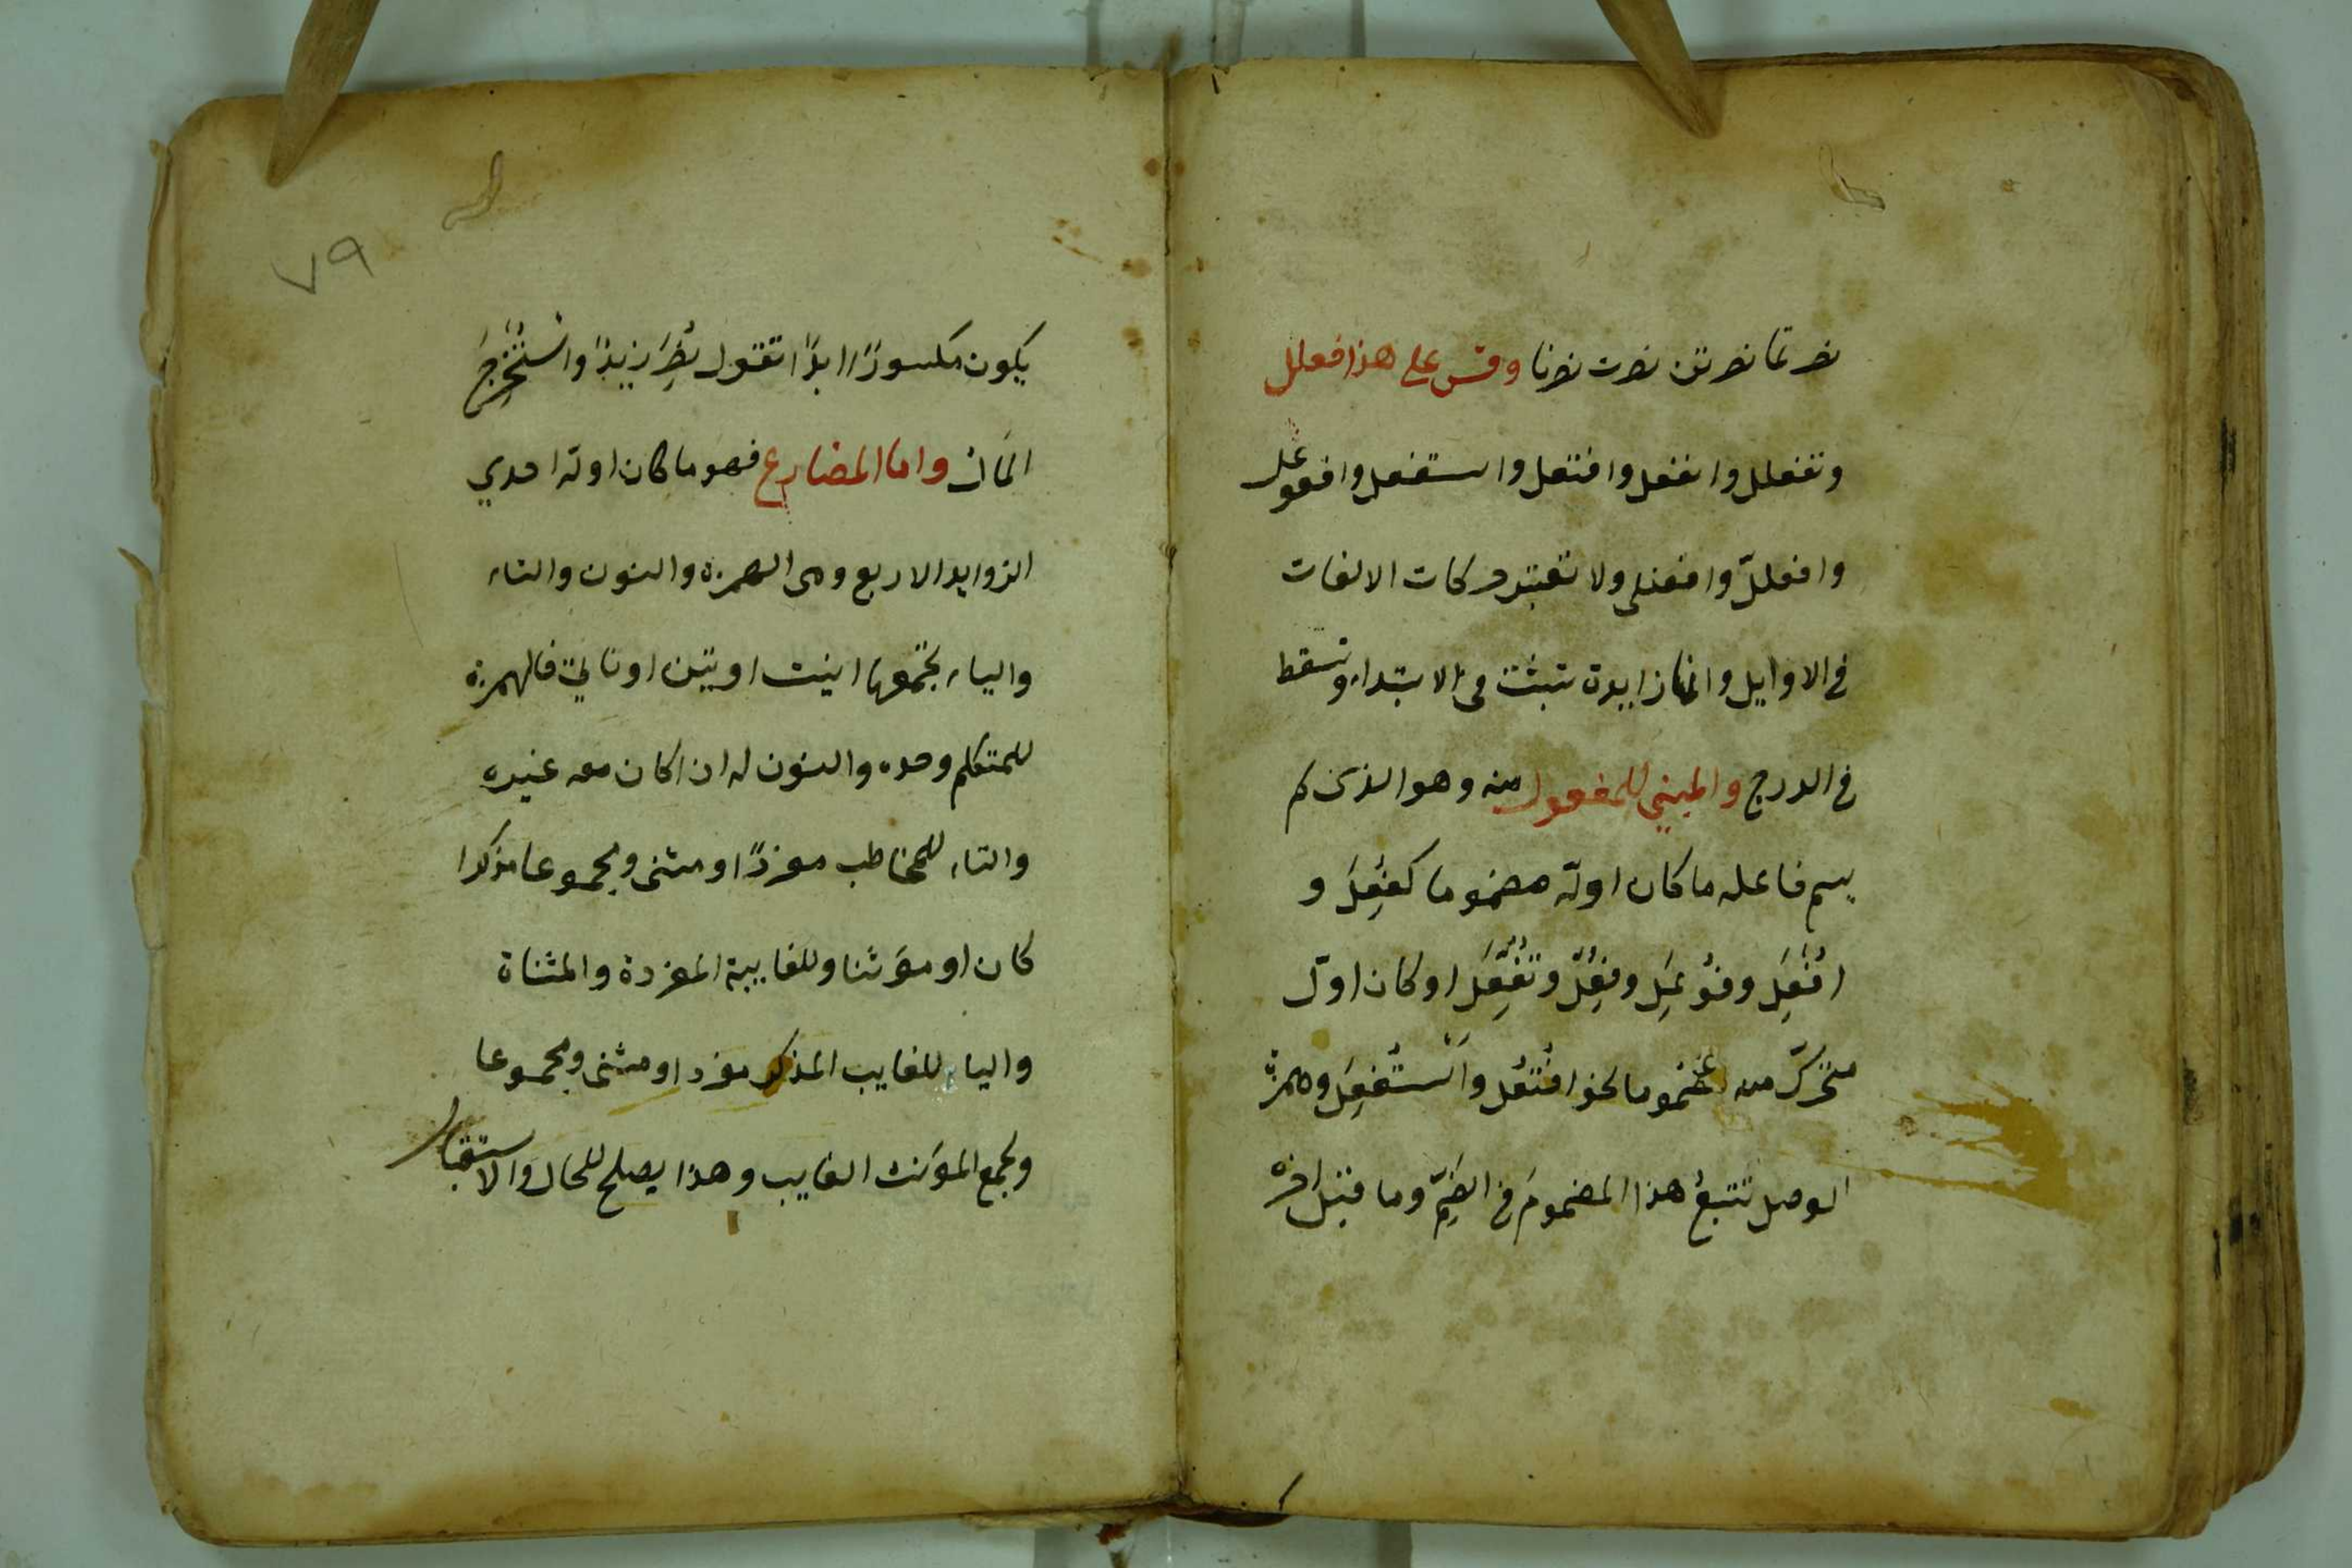 نصرتما نصرتن نصرت نصرنا وقس على هذا فعلل
وتفعلل وانفعل وافتعل واستفعل وافعوعل
وافعللّ وافعنلى ولا تعتبر حركات الالفات
فى الاوايل وانها زايدة تثبت فى الابتداء وتسقط
فى الدرج والمبني للمفعول منه وهو الذى لم
يسم فاعله ما كان اولّه مضموما كفُعِلَ و
اُفْعِلَ وفُوعِلَ وفُعِّلَ وتُفُعِّلَ او كان اوّل
متحرّك منه مضموما نحو افْتُعِل واُسْتُفْعِلَ وهمزة
الوصل تتبعُ هذا المضمومَ فى الضَّمِّ وما قبل اخره
٧٩
يكون مكسورًا ابدًا تقول نُصِرَ زيدًا واسْتُخْرِجَ
المال واما المضارع فهو ما كان اوله احدي
الزوايد الاربع وهى الهمزة والنون والتاء
والياء تجمعها انيت او يتين او نأتي فالهمزة
للمتكلم وحده والنون له اذا كان معه غيره
والتاء للمخاطب مفردًا او مثنى ومجموعا مذكرا
كان او مؤنثا وللغايبة المفردة والمثناة
والياء للغايب المذكر مفردا ومثنى ومجموعا
ولجمع المؤنث الغايب وهذا يصلح للحال والاستقبال